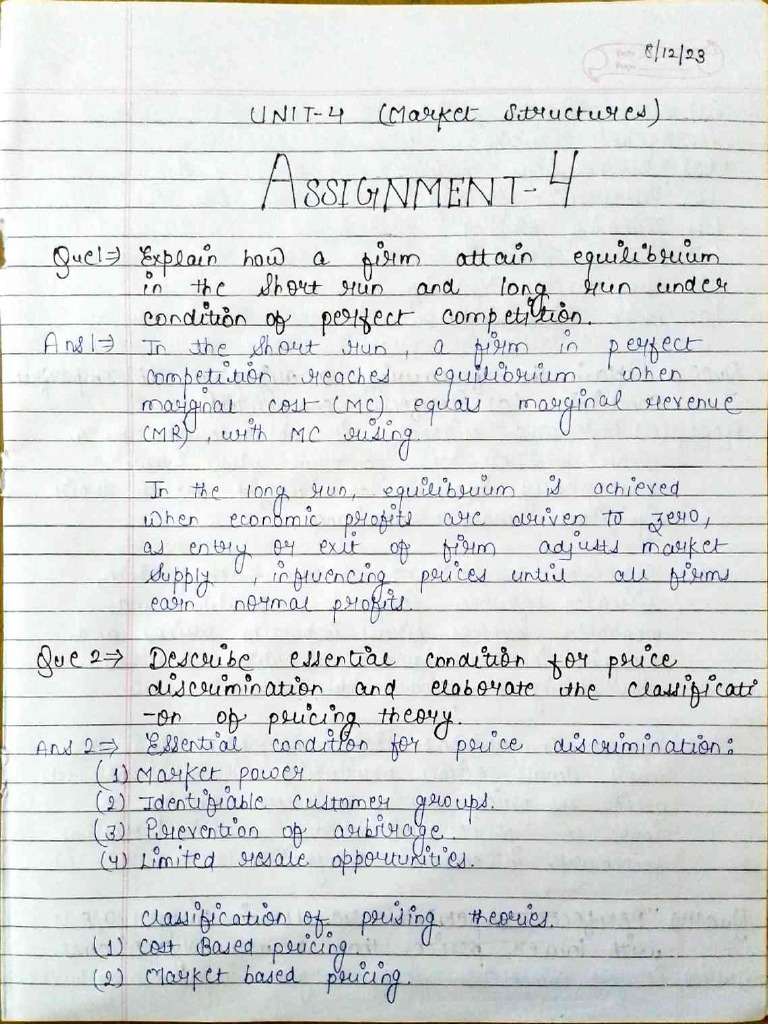 8/12/23
UNIT-4 (Market Structures)
ASSIGNMENT-4
Que1⇒ Explain how a firm attain equilibrium
in the short run and long run under
condition of perfect competition.
Ans1⇒ In the short run, a firm in perfect
competition reaches equilibrium when
marginal cost (MC) equals marginal revenue
(MR), with MC rising.
In the long run, equilibrium is achieved
when economic profits are driven to zero,
as entry or exit of firm adjusts market
supply, influencing prices until all firms
earn normal profits.
Que 2⇒ Describe essential condition for price
discrimination and elaborate the classificati
-on of pricing theory.
Ans 2⇒ Essential condition for price discrimination:
(1) Market power
(2) Identifiable customer groups.
(3) Prevention of arbitrage.
(4) Limited resale opportunities.
classification of prising theories.
(1) Cost Based pricing
(2) Market based pricing.